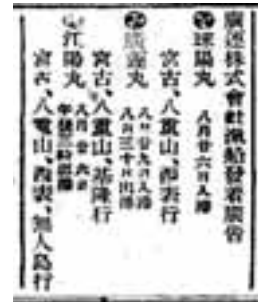 廣運株式會社滊船發着廣告
球陽丸 八月廿六日入港
宮古、八重山、西表行
廣運丸 八月廿九日入港
八月三十日出港
宮古、八重山、基隆行
江陽丸 八月廿九日
午後三時出港
宮古、八重山、西表、無人島行